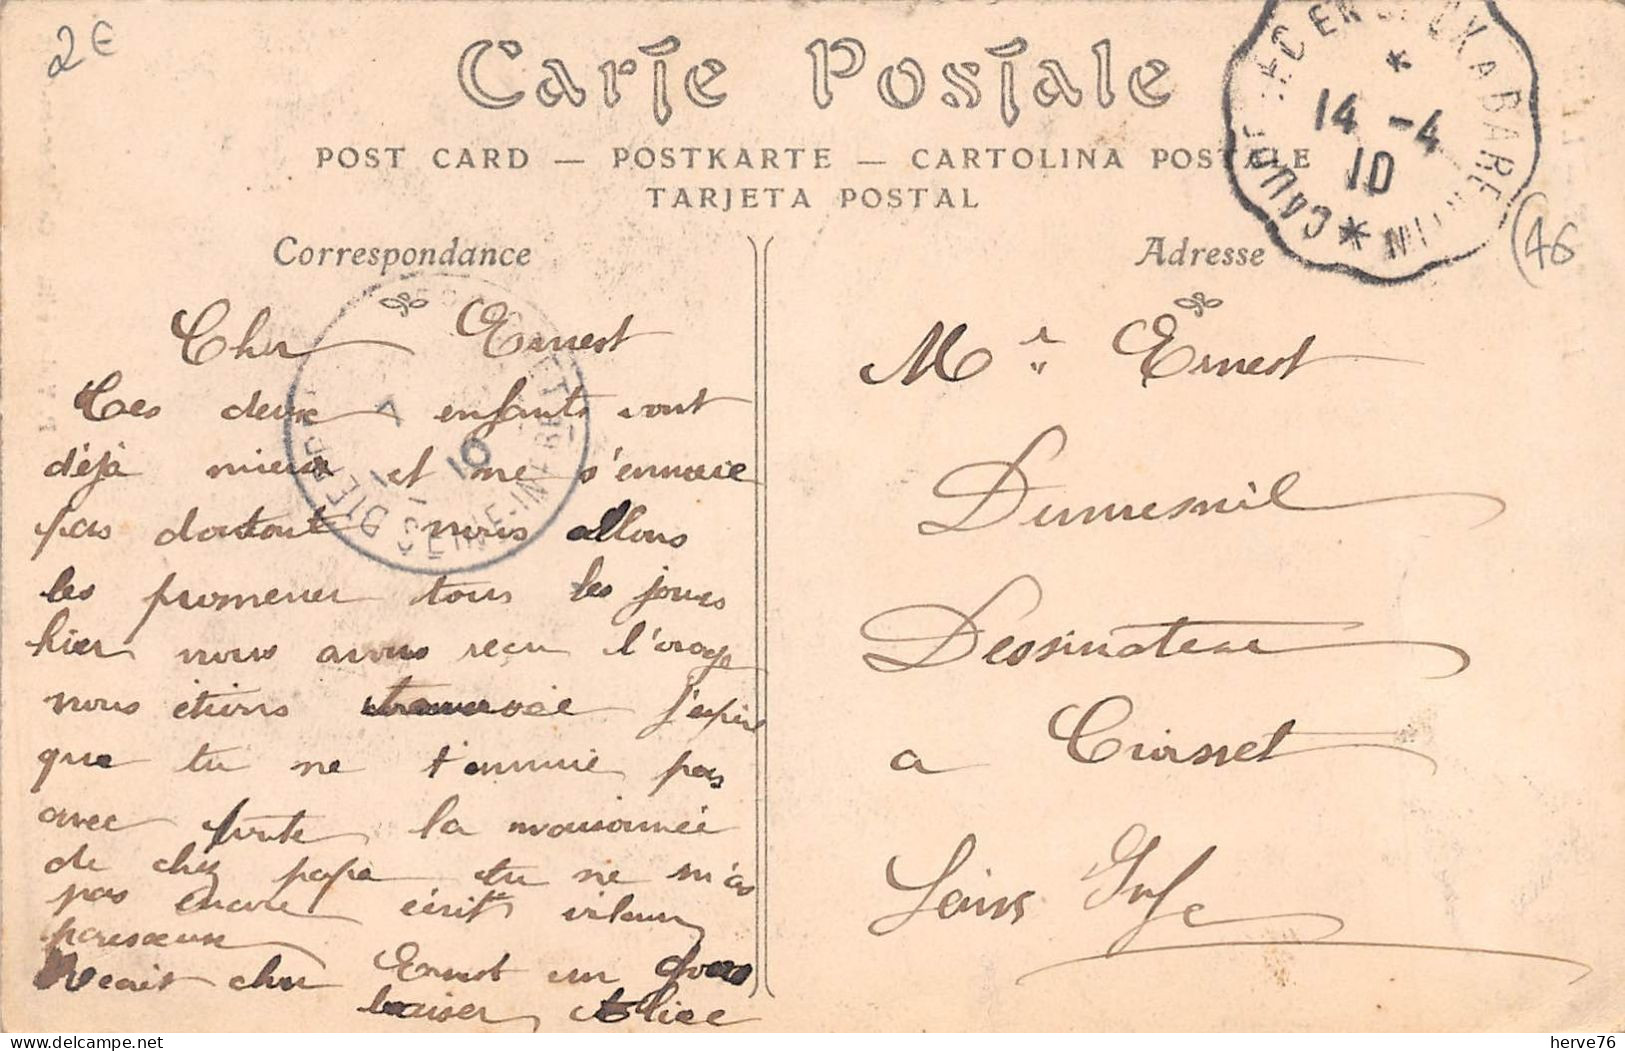 2€
Carte Postale
POST CARD — POSTKARTE — CARTOLINA POSTALE
TARJETA POSTAL
CAUDEBEC EN CAUX A BARENTIN
14 -4
10
46
Correspondance
Cher Ernest
Ces deux enfants vont
déjà mieux et ne s'ennuie
pas doutout nous allons
les promener tous les jours
hier nous avons reçu l'orage
nous étions j'espère
que tu ne t'ennuie pas
avec toute la maisonnée
de chez papa tu ne m'as
pas encore écrit vilain
paresseux
Recait cher Ernest un gros
baiser Alice
7
10
SEINE-INF
Adresse
Mr Ernest
Dumesnil
Dessinateur
a Croisset
Seine Infe
herve76